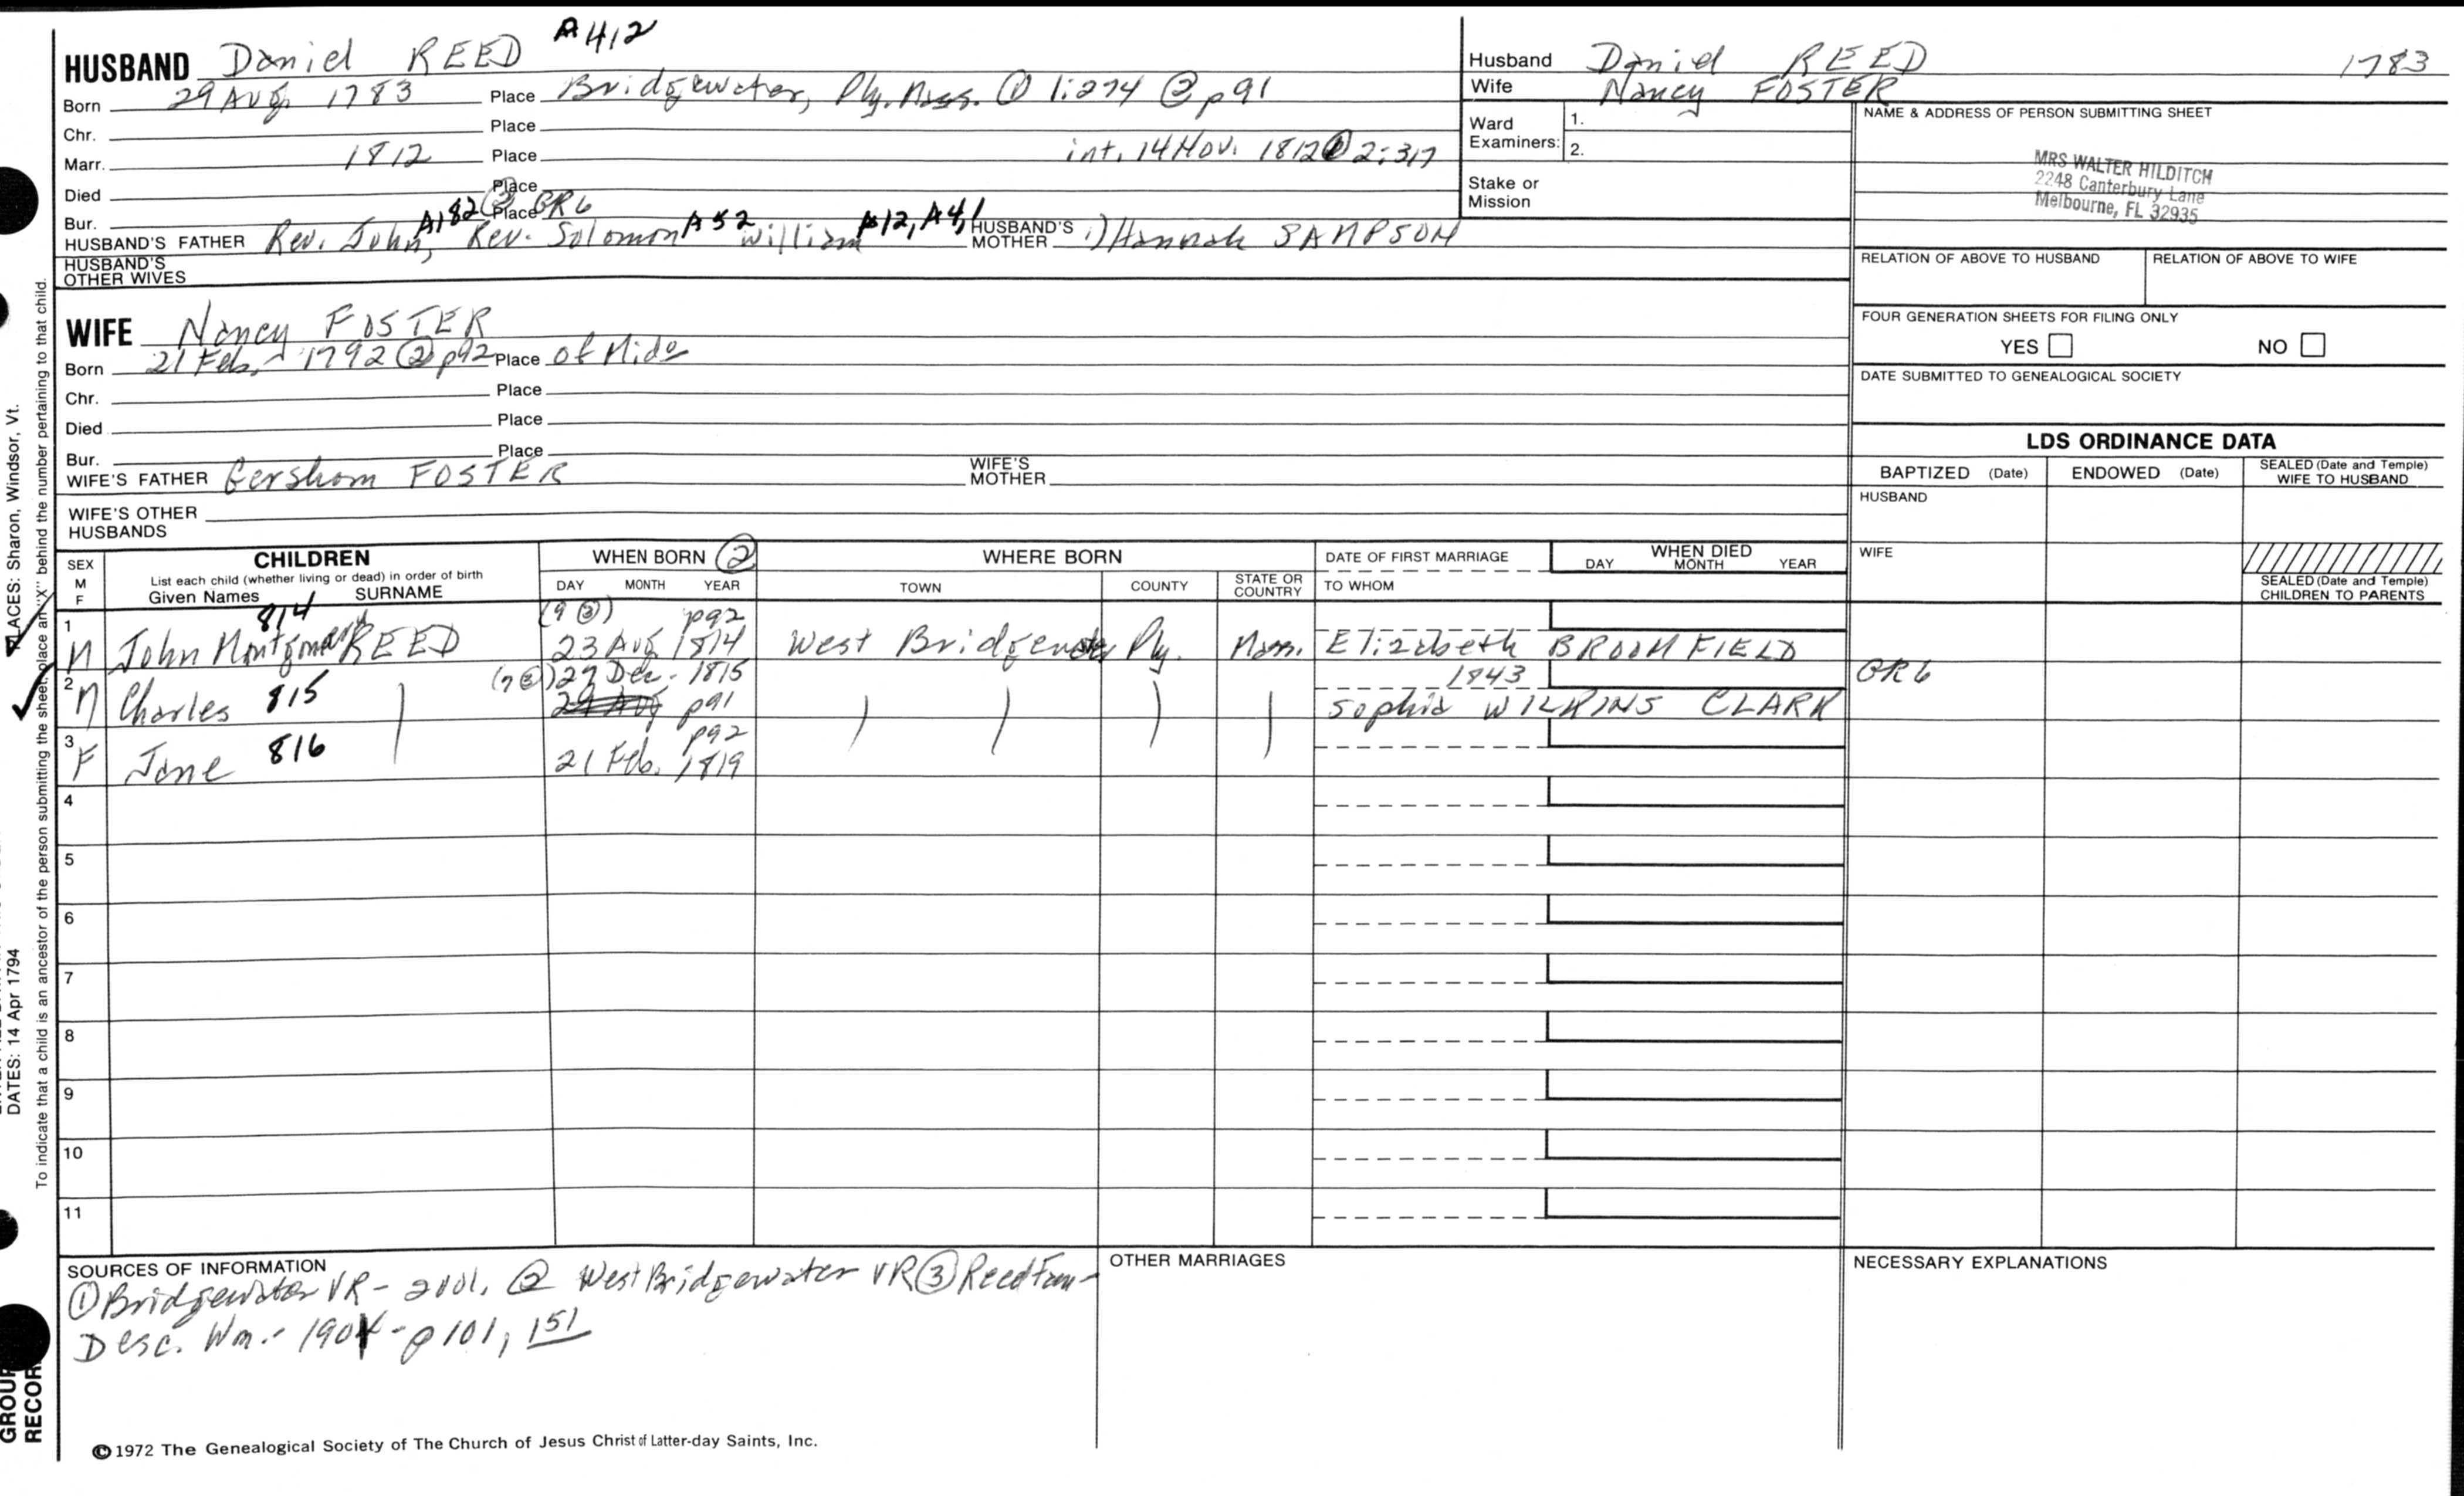 HUSBAND Daniel REED A412
Born 29 Aug. 1783 Place Bridgewater, Ply. Mass. ① 1:274 ② p91
Chr. Place
Marr. 1812 Place int. 14 Nov. 1812 ① 2:317
Died Place
Bur. Place ② GR6
HUSBAND'S FATHER Rev. John, A182 Rev. Solomon A52 William A12, A4,1 HUSBAND'S MOTHER 1) Hannah SAMPSON
HUSBAND'S OTHER WIVES
Husband Daniel REED 1783
Wife Nancy FOSTER
Ward Examiners: 1.
2.
Stake or Mission
NAME & ADDRESS OF PERSON SUBMITTING SHEET
MRS WALTER HILDITCH
2248 Canterbury Lane
Melbourne, FL 32935
RELATION OF ABOVE TO HUSBAND RELATION OF ABOVE TO WIFE
FOUR GENERATION SHEETS FOR FILING ONLY
YES NO
DATE SUBMITTED TO GENEALOGICAL SOCIETY
WIFE Nancy FOSTER
Born 21 Feb. 1792 ② p92 Place of Mido
Chr. Place
Died Place
Bur. Place
WIFE'S FATHER Gershom FOSTER WIFE'S MOTHER
WIFE'S OTHER HUSBANDS
LDS ORDINANCE DATA
BAPTIZED (Date) ENDOWED (Date) SEALED (Date and Temple) WIFE TO HUSBAND
HUSBAND
WIFE
SEALED (Date and Temple) CHILDREN TO PARENTS
SEX M F CHILDREN WHEN BORN ② WHERE BORN DATE OF FIRST MARRIAGE WHEN DIED
List each child (whether living or dead) in order of birth
Given Names SURNAME DAY MONTH YEAR TOWN COUNTY STATE OR COUNTRY TO WHOM DAY MONTH YEAR
814 (9 ③) p92
1 M John Montgomery REED 23 Aug 1814 West Bridgewater Ply. Mass. Elizabeth BROOMFIELD
(7 ③) 27 Dec. 1815 1843 GR6
2 M Charles 815 29 Aug p91 Sophia WILKINS CLARK
p92
3 F Jane 816 21 Feb. 1819
4
5
6
7
8
9
10
11
SOURCES OF INFORMATION
① Bridgewater VR - 2 vol. ② West Bridgewater VR ③ Reed Fam -
Desc. Wm. - 1901 - p 101, 151
OTHER MARRIAGES
NECESSARY EXPLANATIONS
© 1972 The Genealogical Society of The Church of Jesus Christ of Latter-day Saints, Inc.
PLACES: Sharon, Windsor, Vt.
DATES: 14 Apr 1794
To indicate that a child is an ancestor of the person submitting the sheet, place an "X" behind the number pertaining to that child.
GROUP
RECOR